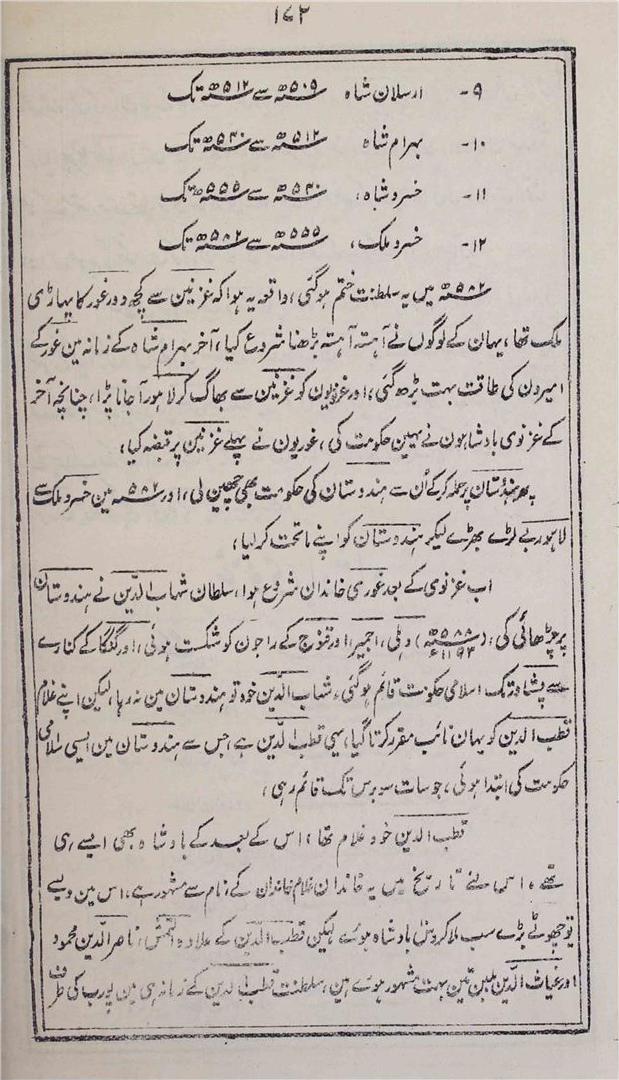 ۱۷۲
۹- ارسلان شاہ ۵۰۹ھ سے ۵۱۲ھ تک
۱۰- بہرام شاہ ۵۱۲ھ سے ۵۴۰ھ تک
۱۱- خسرو شاہ، ۵۴۰ھ سے ۵۵۵ھ تک
۱۲- خسرو ملک، ۵۵۵ھ سے ۵۸۲ھ تک
۵۸۲ھ میں یہ سلطنت ختم ہوگئی، واقعہ یہ ہوا کہ غزنین سے کچھ دور غور کا پہاڑی
ملک تھا، یہان کے لوگوں نے آہستہ آہستہ بڑھنا شروع کیا، آخر بہرام شاہ کے زمانہ مین غور کے
امیرون کی طاقت بہت بڑھ گئی، اور غزنویون کو غزنین سے بھاگ کر لاہور آجانا پڑا، چنانچہ آخر
کے غزنوی بادشاہون نے یہین حکومت کی، غوریون نے پہلے غزنین پر قبضہ کیا،
پھر ہندُستان پر حملہ کر کے اُن سے ہندوستان کی حکومت بھی چھین لی، اور ۵۸۲ھ مین خسرو ملک سے
لاہور بے لڑے بھڑے لیکر ہندوستان کو اپنے ماتحت کر لیا،
اب غزنوی کے بعد غوری خاندان شروع ہوا، سلطان شہاب الدّین نے ہندوستان
پر چڑھائی کی، (۵۸۸ھ ۱۱۹۳ء) دہلی، اجمیر، اور قنوج کے راجون کو شکست ہوئی، اور گنگا کے کنارے
سے پشاور تک اسلامی حکومت قائم ہوگئی، شہاب الدّین خود تو ہندوستان مین نہ رہا، لیکن اپنے غلام
قطب الدین کو یہان نائب مقرر کرتا گیا، یہی قطب الدّین ہے، جس سے ہندوستان مین ایسی اسلامی
حکومت کی ابتدا ہوئی، جو سات سو برس تک قائم رہی،
قطب الدین خود غلام تھا، اس کے بعد کے بادشاہ بھی ایسے ہی
تھے، اسی لئے تاریخ میں یہ خاندان غلام خاندان کے نام سے مشہور ہے، اس مین ویسے
تو چھوٹے بڑے سب ملا کر دس بادشاہ ہوئے لیکن قطب الدّین کے علاوہ التمش، ناصر الدّین محمود
اور غیاث الدّین بلبن تین بہت مشہور ہوئے ہین، سلطنت قطب الدین کے زمانہ ہی مین پورب کی طرف